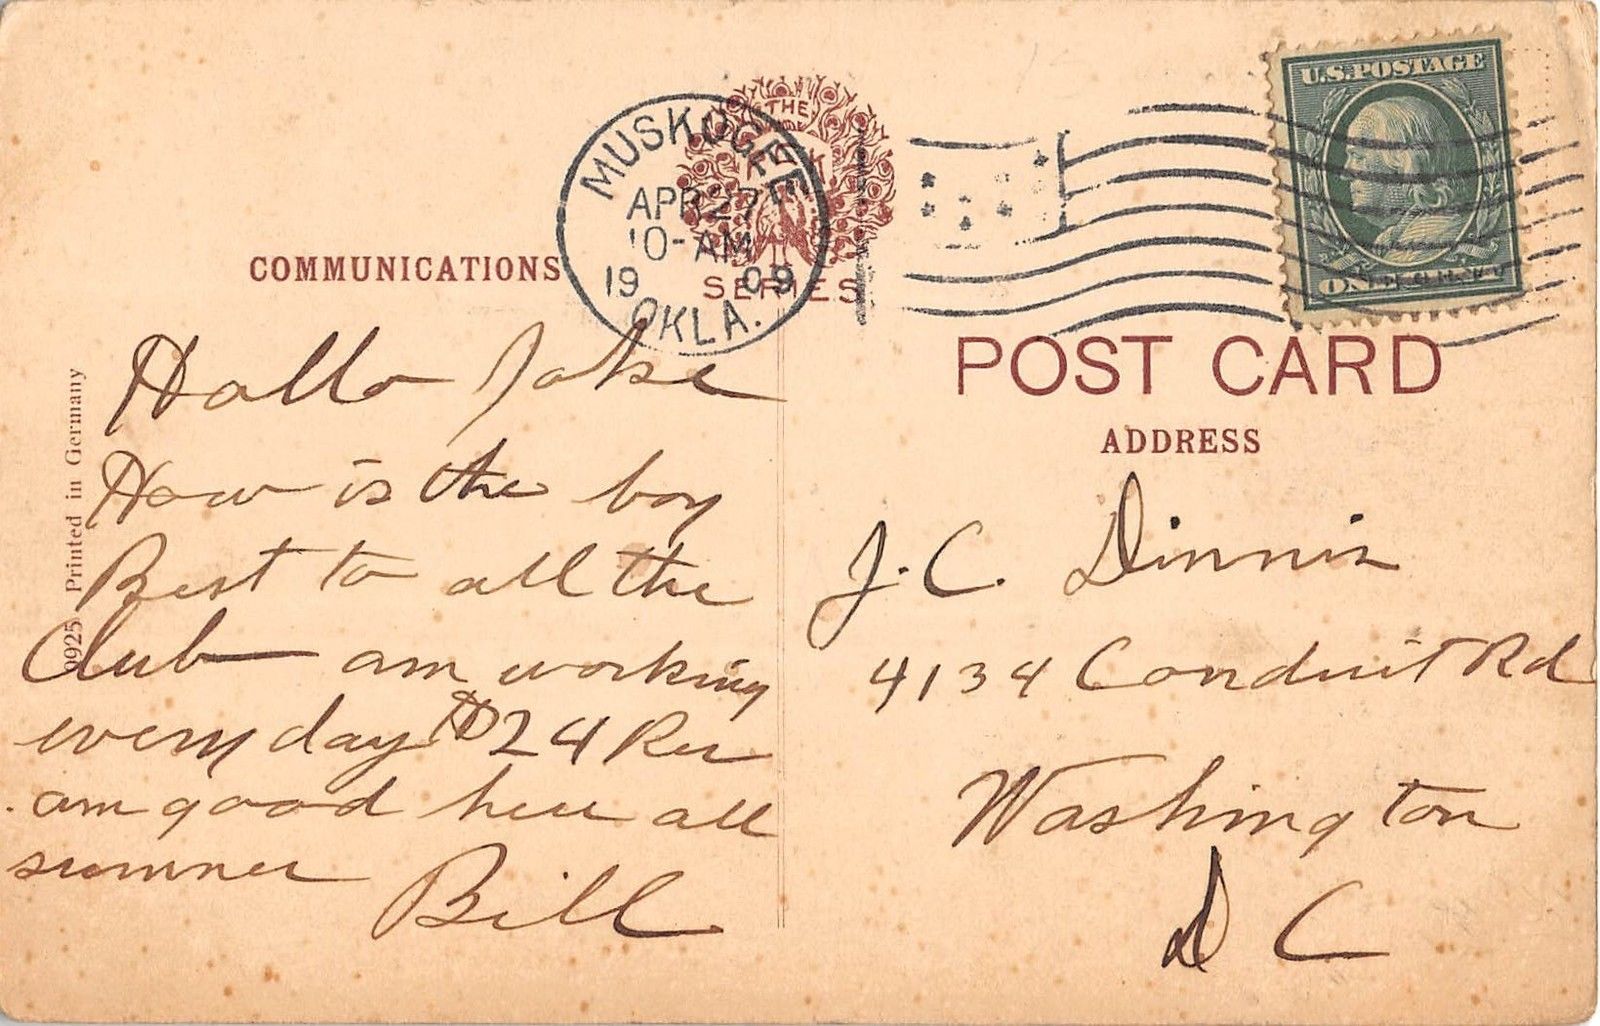 U.S. POSTAGE
MUSKOGEE
APR 27
10-AM
1909
OKLA.
THE
SERIES
COMMUNICATIONS
POST CARD
ADDRESS
9925 Printed in Germany
Hallo Jake
How is the boy
Best to all the
Club am working
every day 24 Per
am good here all
summer
Bill
J. C. Dinnin
4134 Conduit Rd
Washington
D C